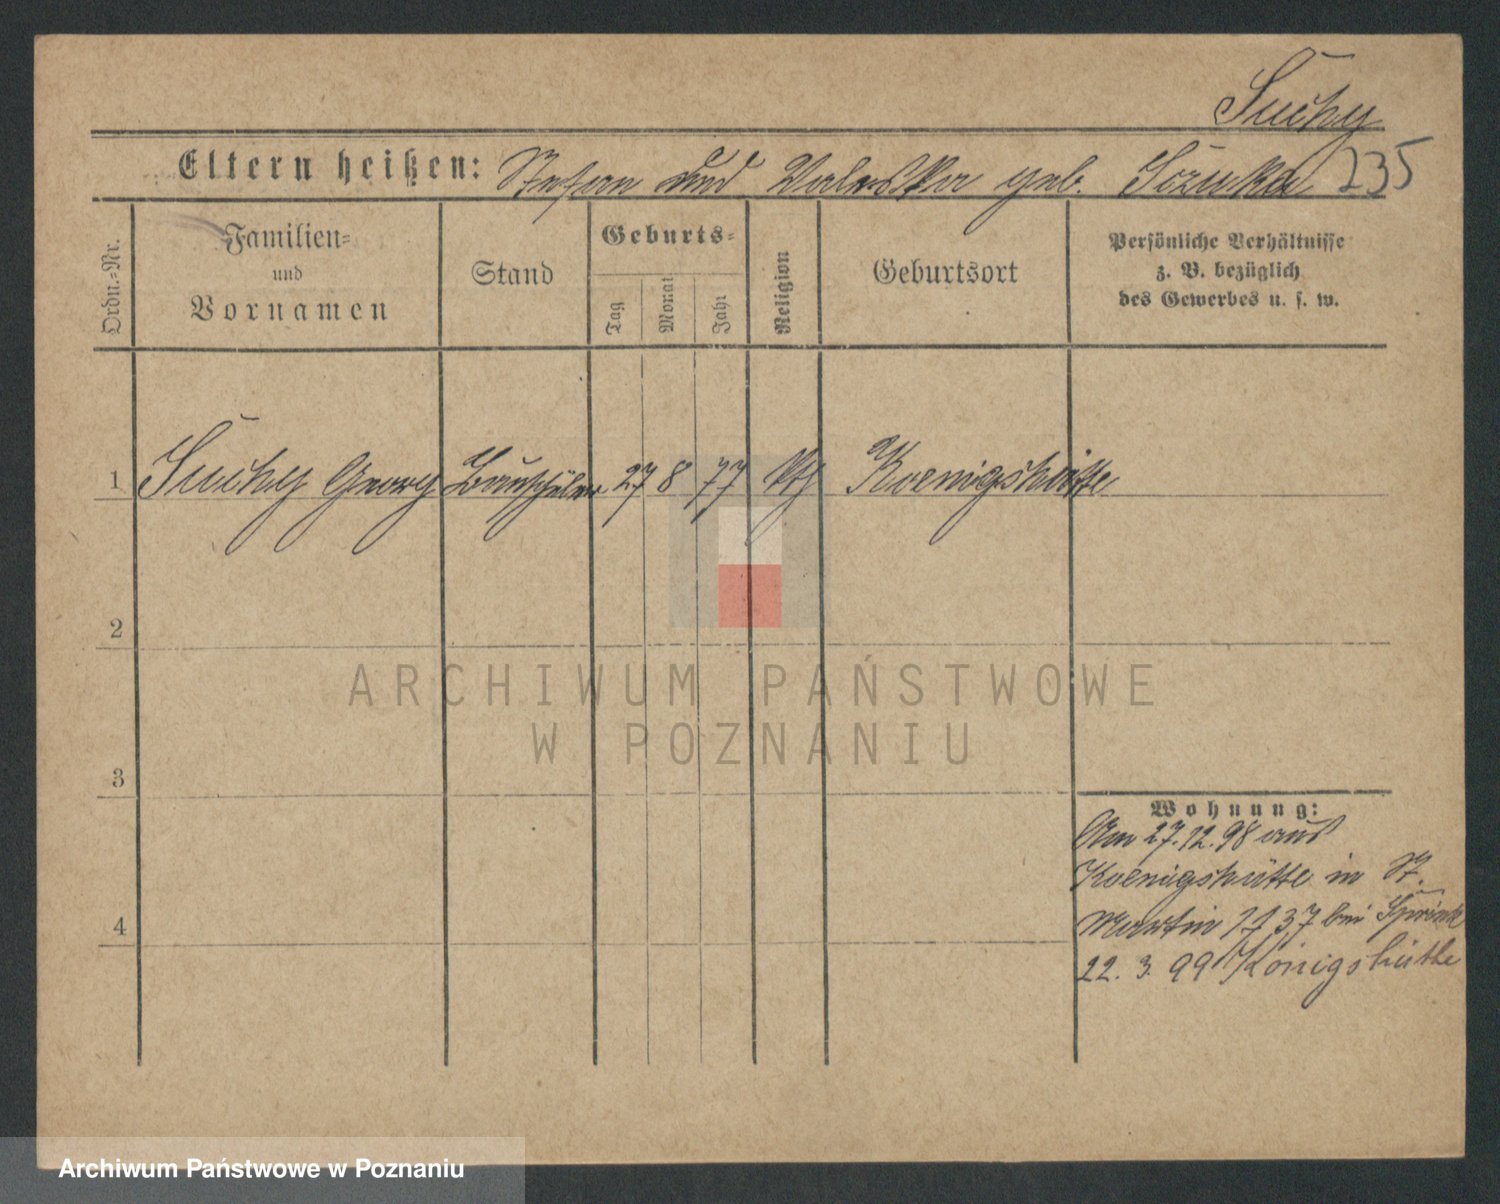 Suchy
Eltern heißen: Stefan und Valeska geb. Sczuka 235
Ordn.=Nr.
Familien=
und
Vornamen
Stand
Geburts=
Tag
Monat
Jahr
Religion
Geburtsort
Persönliche Verhältnisse
z. B. bezüglich
des Gewerbes u. s. w.
1 Suchy Georg Bauschüler 27 8 77 kth Koenigshütte
2
3
4
Wohnung:
Am 27.12.98 aus
Koenigshütte in St.
Martin 37 bei
22. 3. 99 Königshütte
ARCHIWUM PAŃSTWOWE
W POZNANIU
Archiwum Państwowe w Poznaniu